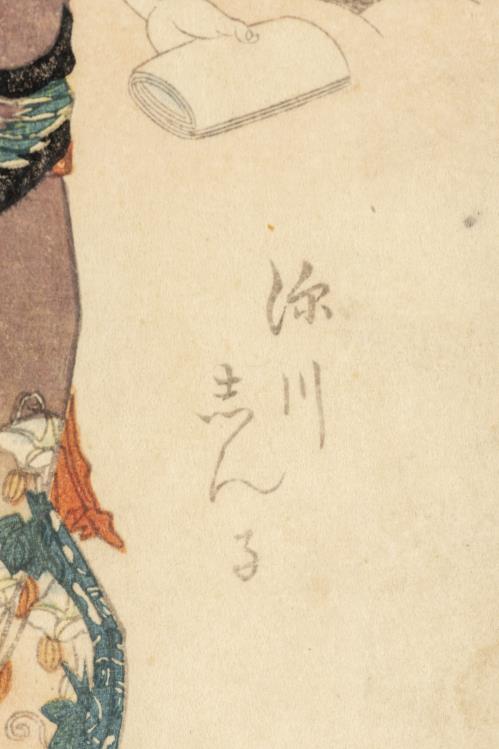 深川
志ん子